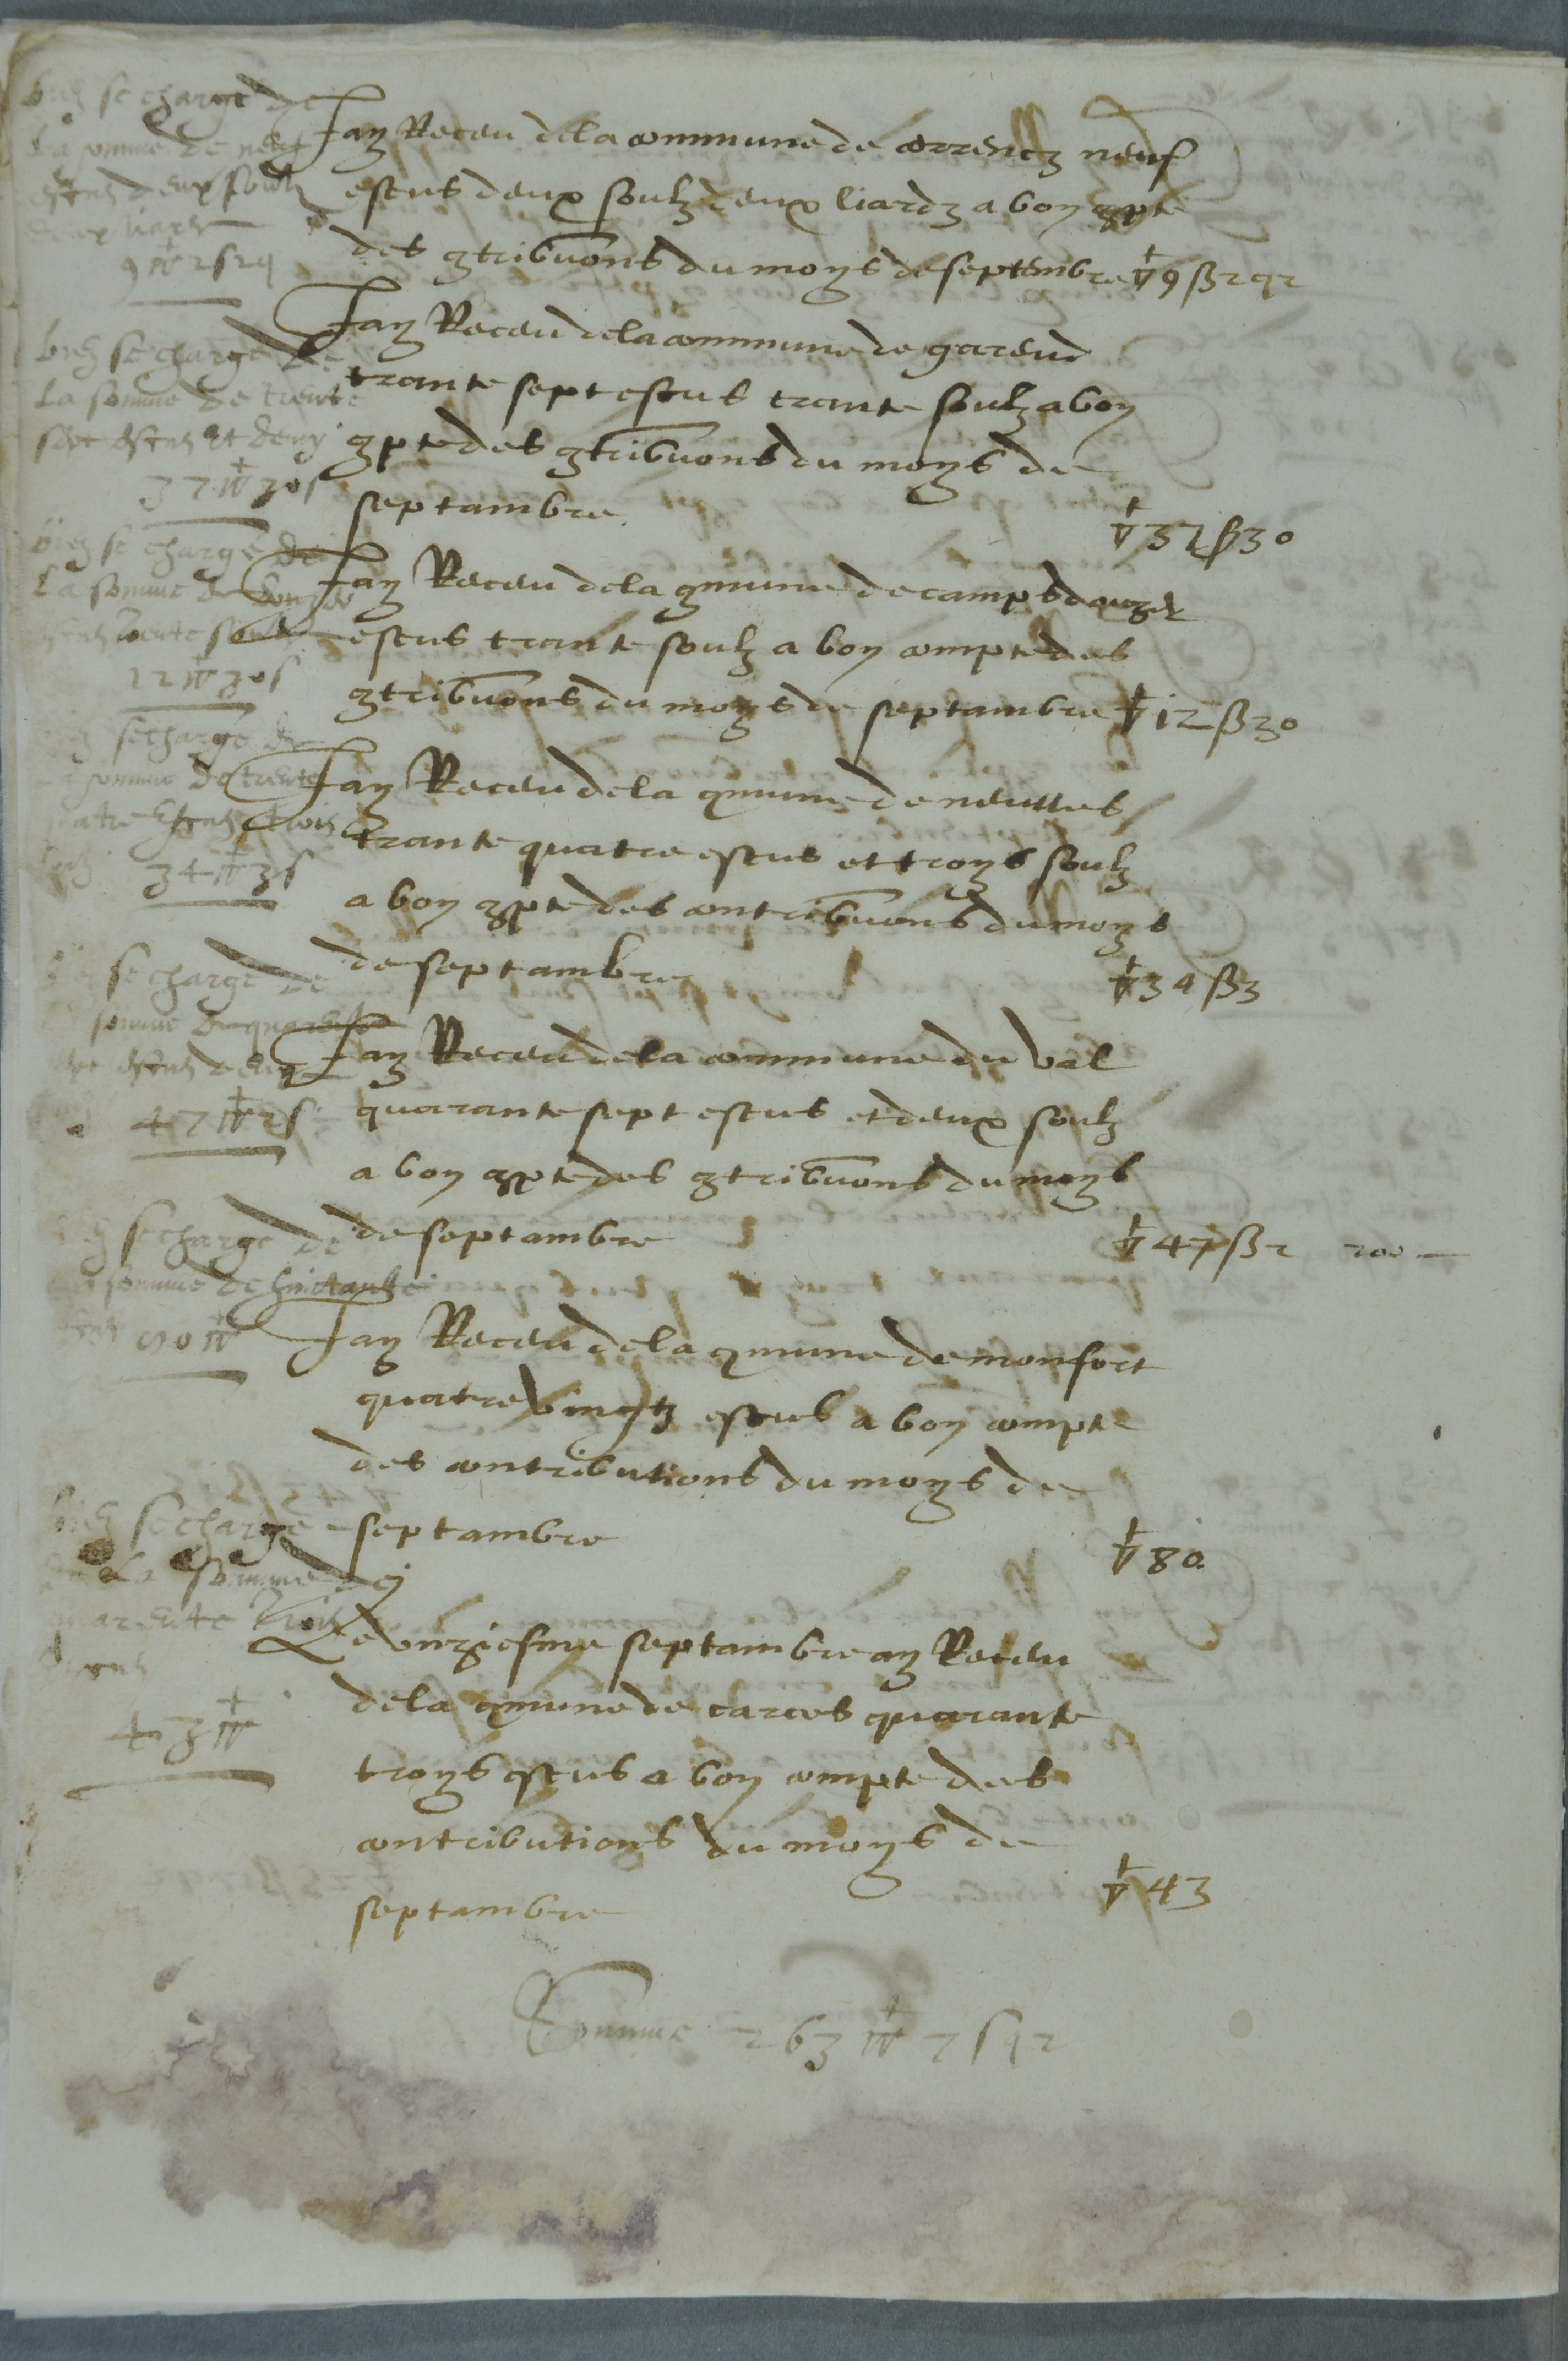 bien se charge de
La somme de neuf
escus deux soulz
deux liars
9 ▽ 2 s 2 q
Jay Receu dela commune de correncz neuf
escus deux soulz deux liardz a bon 9pte
des 9tribuons du moys de septembre ▽ 9 ß 2 q 2
bien se charge de
La somme de trente
sept escus et demy
37 ▽ 30 s
Jay Receu dela commune de gareud
trante sept escus trante soulz a bon
9pte des 9tribuons du moys de
septambre ▽ 37 ß 30
bien se charge de
La somme de douze
escus trente soulz
12 ▽ 30 s
Jay Receu dela 9mune de camps douze
escus trante soulz a bon compte des
9tribuons du moys de septambre ▽ 12 ß 30
se charge de
somme de trente
quatre escus trois
34 ▽ 3 s
Jay Receu dela 9mune de neulles
trante quatre escus et troys soulz
a bon 9pte des contribuons du moys
de septambre ▽ 34 ß 3
se charge de
somme de quarente
sept escus deux
47 ▽ 2 s
Jay Receu dela commune du val
quarante sept escus et deux soulz
a bon 9pte des 9tribuons du moys
de septambre ▽ 47 ß 2 200
se charge de
somme de huictante
escus 80 ▽
Jay Receu dela 9mune de monfort
quatre vingtz escus a bon compte
des contributions du moys de
septambre ▽ 80
bien se charge
de La somme de
quarente trois
escus
43 ▽
Le unziesme septambre ay Receu
dela 9mune de carces quarante
troys escus a bon compte des
contributions du moys de
septambre ▽ 43
Somme 263 ▽ 7 s q 2